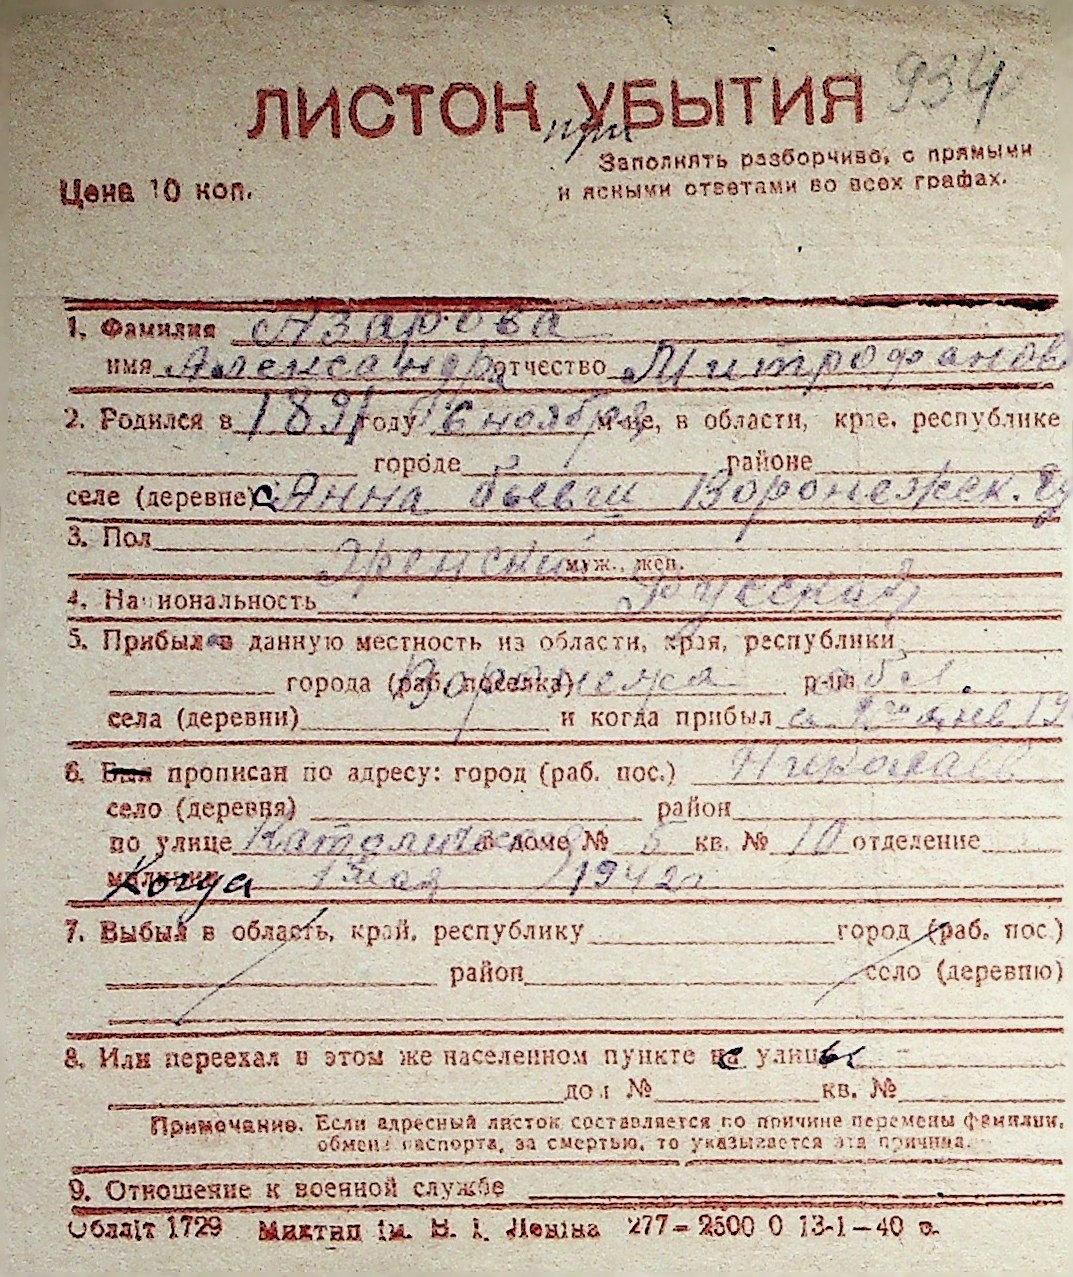 934
ЛИСТОН УБЫТИЯ
при
Заполнять разборчиво, с прямыми
Цена 10 коп.
и ясными ответами во всех графах.
1. Фамилия Азарова
имя Александра отчество Митрофанов
2. Родился в 1891 году 6 ноября м-це, в области, крае, республике
городе районе
селе (деревне) с. Анна бывш Воронежск. Гу
3. Пол Женский муж., жен.
4. Национальность Русская
5. Прибыл в данную местность из области, края, республики
города (раб. поселка) Воронежа р-на обл.
села (деревни) и когда прибыл с 2го янв 19
6. Был прописан по адресу: город (раб. пос.) Николаев
село (деревня) район
по улице Католическ в доме № 5 кв. № 10 отделение
милиции Когда 1 мая 1942г
7. Выбыл в область, край, республику город (раб. пос.)
район село (деревню)
8. Или переехал в этом же населенном пункте с улицы
дом № кв. №
Примечание. Если адресный листок составляется по причине перемены фамилии,
обмена паспорта, за смертью, то указывается эта причина.
9. Отношение к военной службе
Обліт 1729 Миктип ім. В. І. Леніна 277 — 2500 0 13-1 — 40 в.